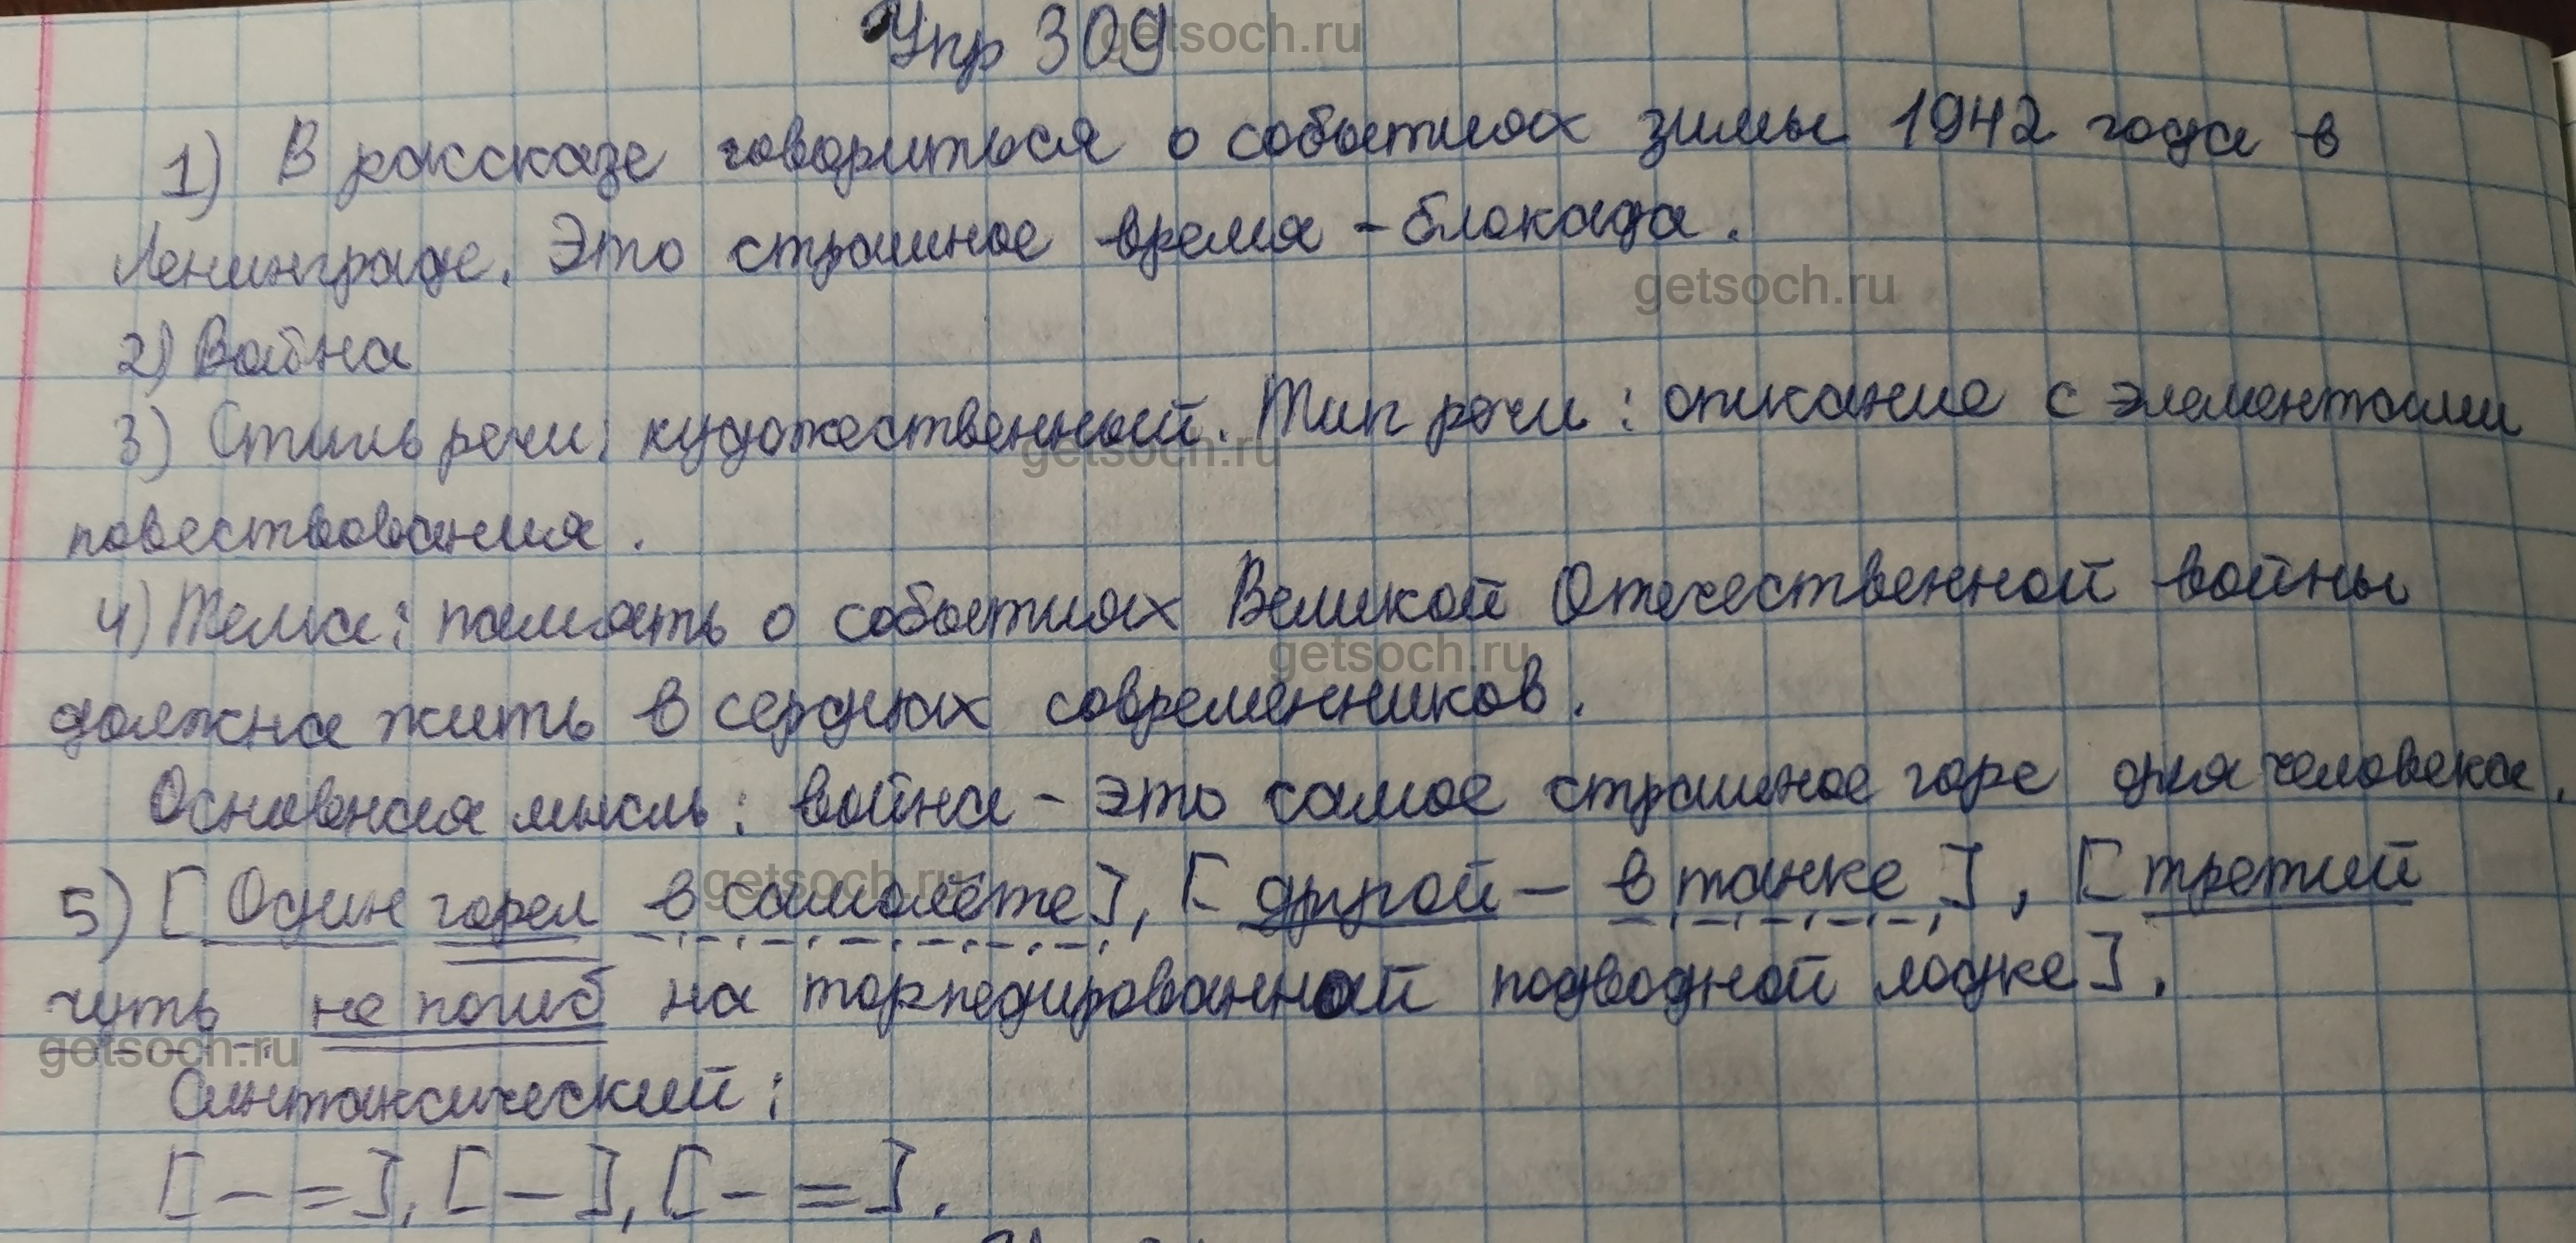 Упр 309
1) В рассказе говориться о событиях зимы 1942 года в
Ленинграде. Это страшное время - блокада.
2) Война
3) Стиль речи: художественный. Тип речи: описание с элементами
повествования.
4) Тема: память о событиях Великой Отечественной войны
должна жить в сердцах современников.
Основная мысль: война - это самое страшное горе для человека.
5) [Один горел в самолёте], [другой - в танке], [третий
чуть не погиб на торпедированной подводной лодке].
Синтаксический:
[- =], [-], [- =].
getsoch.ru
getsoch.ru
getsoch.ru
getsoch.ru
getsoch.ru
getsoch.ru